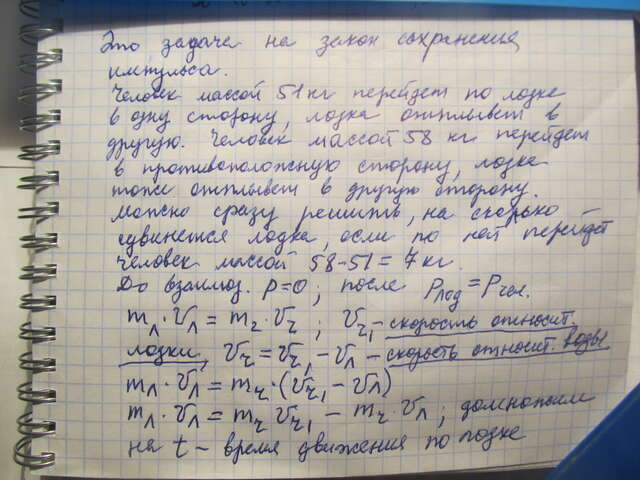 Это задача на закон сохранения
импульса.
Человек массой 51 кг перейдет по лодке
в одну сторону, лодка отплывет в
другую. Человек массой 58 кг перейдет
в противоположную сторону, лодка
тоже отплывет в другую сторону.
Можно сразу решить, на сколько
сдвинется лодка, если по ней перейдёт
человек массой 58-51=7 кг.
До взаимод. p=0; после Pлод=Pчел.
mл·υл=mч·υч; υч₁-скорость относит.
лодки, υч=υч₁-υл-скорость относит. воды
mл·υл=mч·(υч₁-υл)
mл·υл=mч υч₁-mч·υл; домножим
на t - время движения по лодке